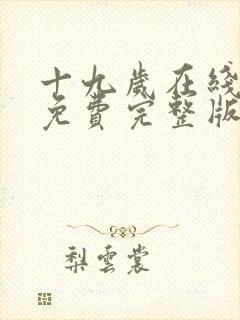 十九歲在綫
免費完整版
梨雲裳